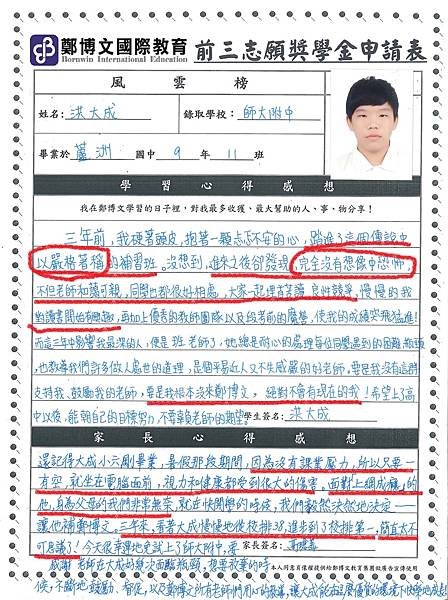 鄭博文國際教育 前三志願獎學金申請表
Bornwin International Education
風雲榜
姓名: 洪大成 錄取學校: 師大附中
畢業於 蘆洲 國中 9 年 11 班
學習心得感想
我在鄭博文學習的日子裡,對我最多收獲、最大幫助的人、事、物分享!
三年前,我硬著頭皮,抱著一顆忐忑不安的心,踏進了這個傳說中
以嚴格著稱的補習班。沒想到,進來之後卻發現,完全沒有想像中恐怖,
不但老師和藹可親,同學也都很好相處,大家一起理首苦讀,良性競爭,慢慢的我
對讀書開始有興趣,再加上優秀的教師團隊以及段考前的魔營,使我的成績突飛猛進!
而這三年中影響我最深的人,便是 班老師了,她總是耐心的處理每位同學遇到的困難
也教導我們許多做人處世的道理,是個平易近人又不失威嚴的好老師,要是我沒有這時
支持我、鼓勵我的老師,要是我根本沒來鄭博文,絕對不會有現在的我!希望上了高
中以後,能朝自己的目標努力,不要辜負老師的期望。 學生簽名: 洪大成
家長心得感想
還記得大成小六剛畢業,暑假那段期間,因為沒有課業壓力,所以只要一
有空,就坐在電腦面前,視力和健康都受到很大的傷害,面對上網成癮的
他,身為父母的我們非常無奈,就在快開學的時候,我們毅然決然地決定一
讓他補鄭博文,三年來,看著大成慢慢地從校排38,進步到了校排第一,簡直太不
可思議了!今天很幸運地考試上了師大附中,要 家長簽名:
感謝 老師在大成幼學次面臨瓶頸,想要放棄的時 本人同意肖像權提供給鄭博文教育集團做廣告宣傳使用
候,不斷地鼓勵、督促,以及鄭博文所有老師們用心的教導,讓大成能在這麼優質的環境下快樂地學習